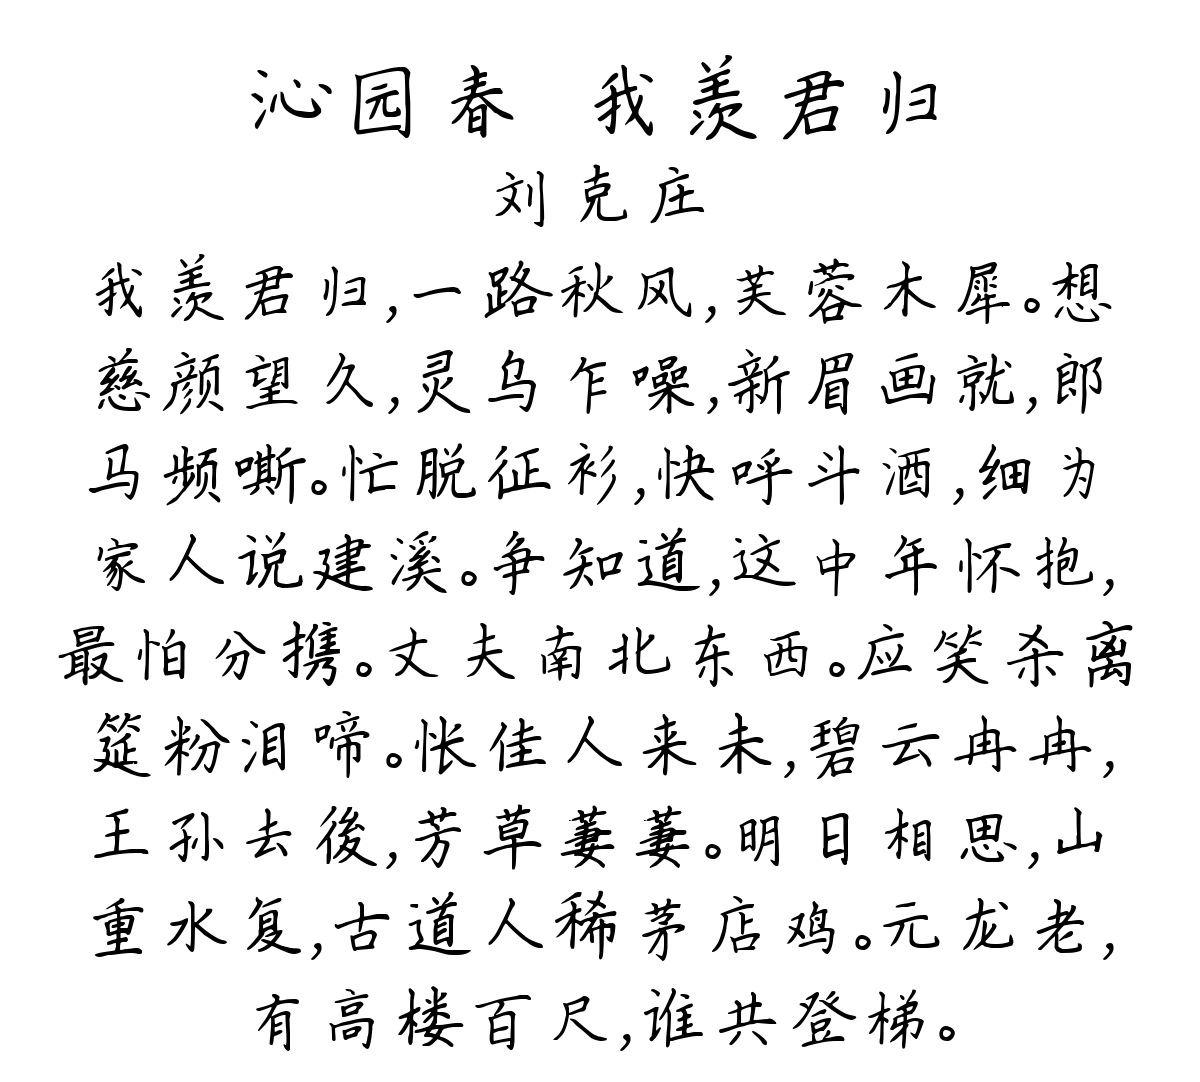 沁园春 我羡君归
刘克庄
我羡君归,一路秋风,芙蓉木犀。想
慈颜望久,灵乌乍噪,新眉画就,郎
马频嘶。忙脱征衫,快呼斗酒,细为
家人说建溪。争知道,这中年怀抱,
最怕分携。丈夫南北东西。应笑杀离
筵粉泪啼。怅佳人来未,碧云冉冉,
王孙去後,芳草萋萋。明日相思,山
重水复,古道人稀茅店鸡。元龙老,
有高楼百尺,谁共登梯。